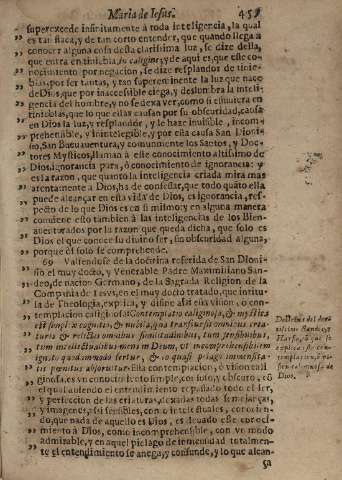 Maria de Iesus. 457
superexcede infinitamente à toda inteligencia, la qual
es tan flaca, y de tan corto entender, que quando llega a
conocer alguna cosa desta clarissima luz, se dize della,
que entra en tiniebla, in caligine; y de aqui es, que este co-
nocimiento por negacion, se dize resplandor de tinie-
blas, por ser tantas, y tan supereminente la luz que nace
de Dios, que por inaccessible ciega, y deslumbra la inteli-
gencia del hombre, y no se dexa ver, como si estuviera en
tinieblas, que lo que ellas causan por su obscuridad, causa
en Dios la luz, y resplandor, y le haze invisible, incom-
prehensible, y inintelegible, y por esta causa San Dioni-
sio, San Buenaventura, y comunmente los Santos, y Doc-
tores Mysticos, llaman à este conocimiento altissimo de
Dios, ignorancia pura, ò conocimiento de ignorancia: y
es la razon, que quanto la inteligencia criada mira mas
atentamente à Dios, ha de confessar, que todo quãto ella
puede alcançar en esta vida de Dios, es ignorancia, res-
pecto de lo que Dios es en si mismo; y en alguna manera
convienc esto tambien à las inteligencias de los Bien-
aventurados por la razon que queda dicha, que solo es
Dios el que conoce su divino ser, sin obscuridad alguna,
porque èl solo se comprehende.
69 Valiendose de la doctrina referida de San Dioni-
sio el muy docto, y Venerable Padre Maximiliano San-
deo, de nacion Germano, de la Sagrada Religion de la
Compañia de Iesvs, en el muy docto tratado, que intitu-
la de Theologia, explica, y difine assi esta vision, ò con-
templacion caliginosa: Contemplatio caliginosa, & mystica
est simplex cognitio, & nubila, qua transcursis omnibus crea-
turis & relictis omnibus similitudinibus, tum sensibilibus,
tum intellectualibus mens in Deum, ut incomprehensibilem
ignoto quodammodo fertur, & in quasi pelago immensita-
tis penitus absorvetur. Esta contemplacion, ò vision cali-
ginosa, es vn conocimiento simple, confuso, y obscuro, cõ
el qual saliendo el entendimiento de todo lo criado
y perfeccion de las criaturas, dexadas todas semejanças,
y imagenes, assi sensibles, como intelectuales, conocien-
do, que nada de aquello es Dios, es llevado este conoci-
miento à Dios, como incomprehensible, con vn modo
admirable, y en aquel pielago de inmensidad totalmen-
te el entendimiento se anega, y confunde, y lo que alcan-
ça
Dios.